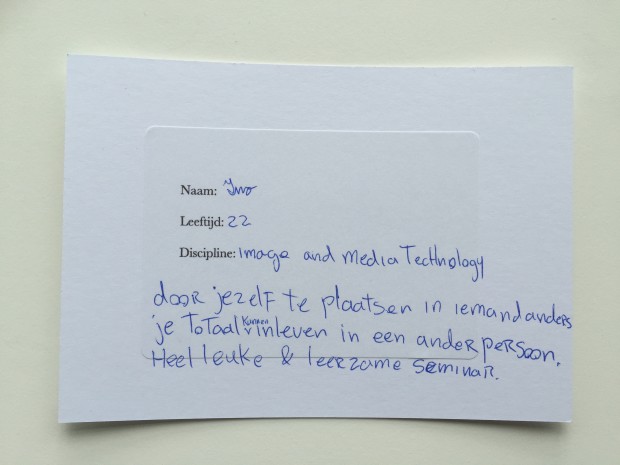 Naam: Ivo
Leeftijd: 22
Discipline: image and media Technology
door jezelf te plaatsen in iemand anders
je totaal kunnen inleven in een ander persoon.
Heel leuke & leerzame seminar.